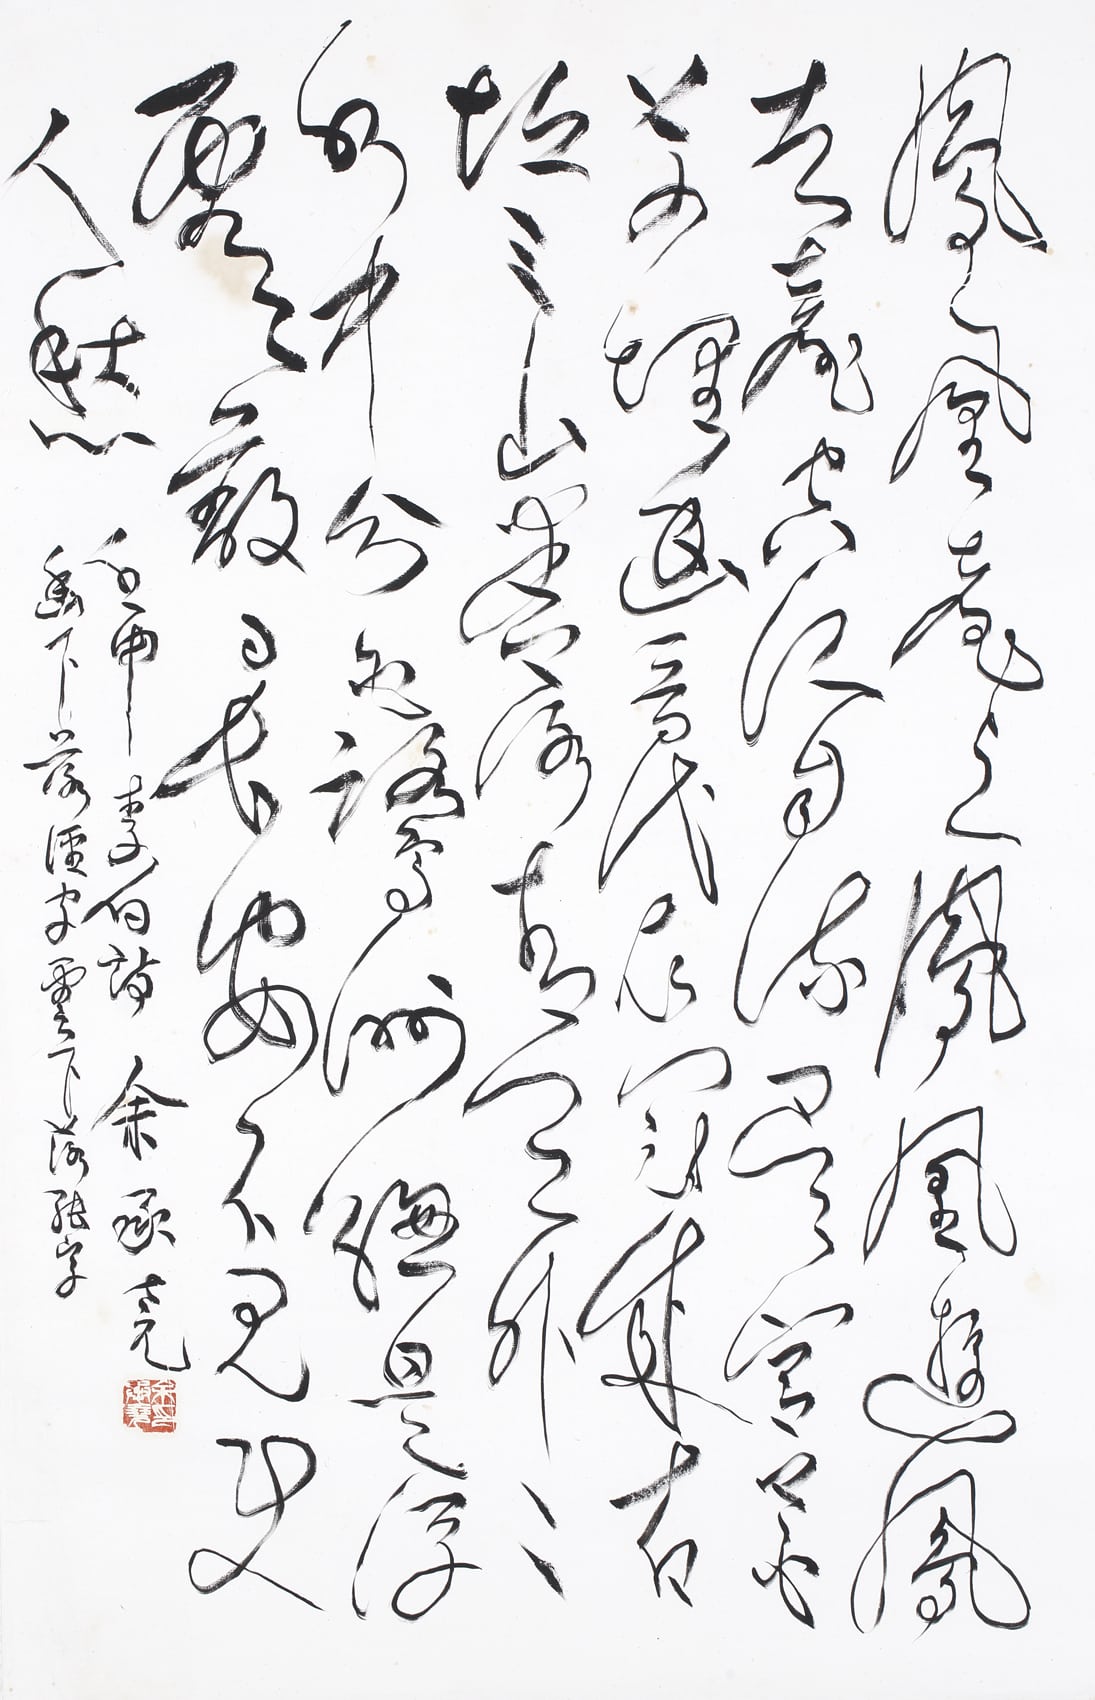 鳳凰臺上鳳凰遊鳳
去臺空江自流吳宮花
草埋幽晉代衣冠成古
坵三山半落青天外二
水中分白鷺洲總是浮
雲蔽日長安不見使
人愁
壬申李白詩 余承堯
幽下落徑字雲下落能字